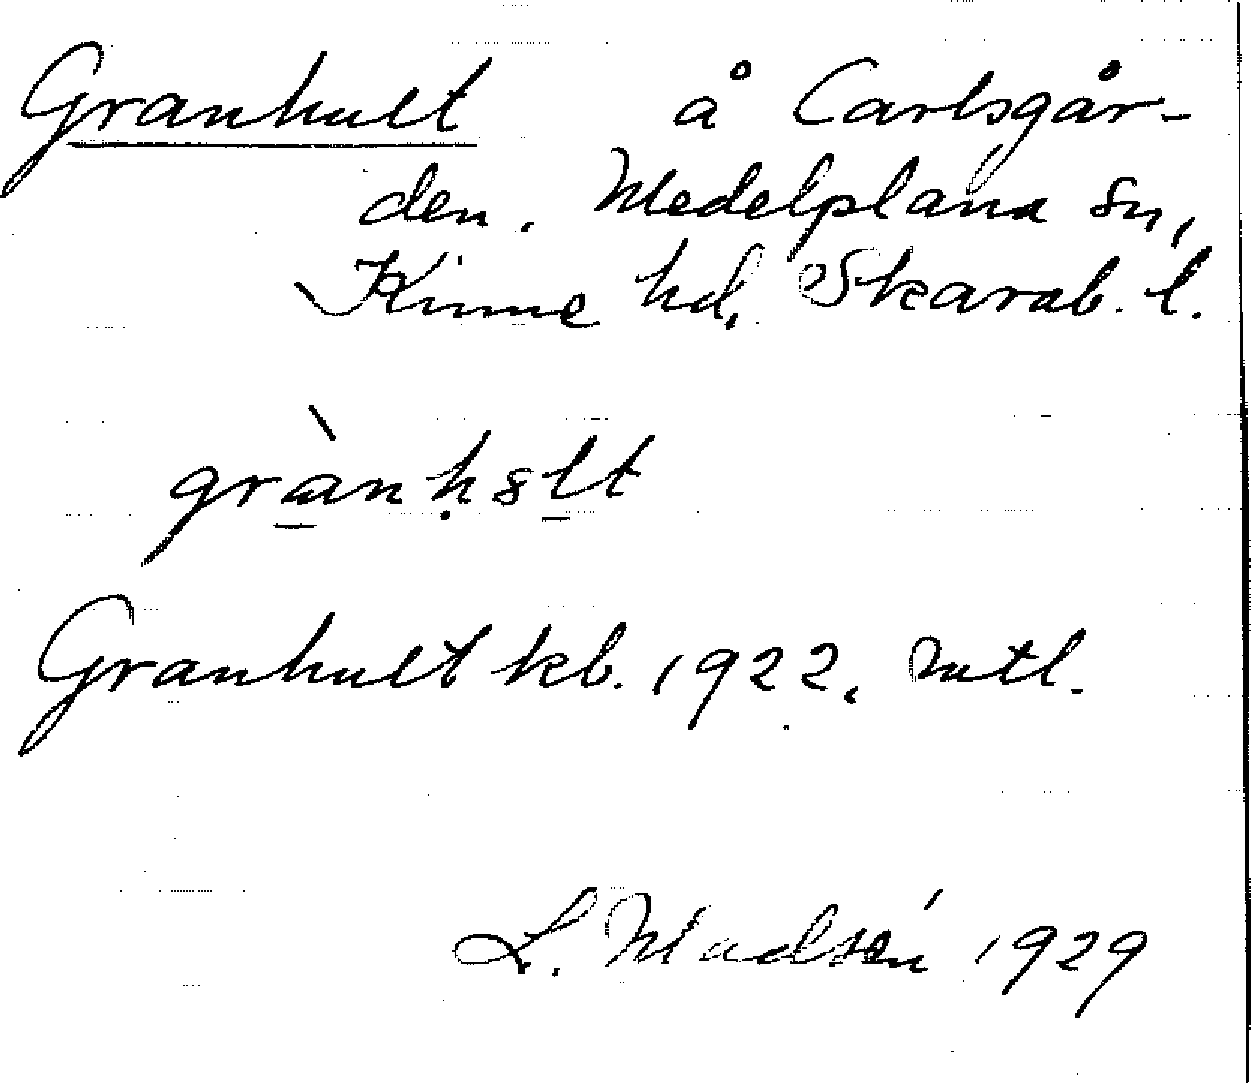 Granhult å Carlsgår-
den. Medelplana sn,
Kinne hd, Skarab. l.
Granhult kb. 1922. mtl.
L. Madsén 1929